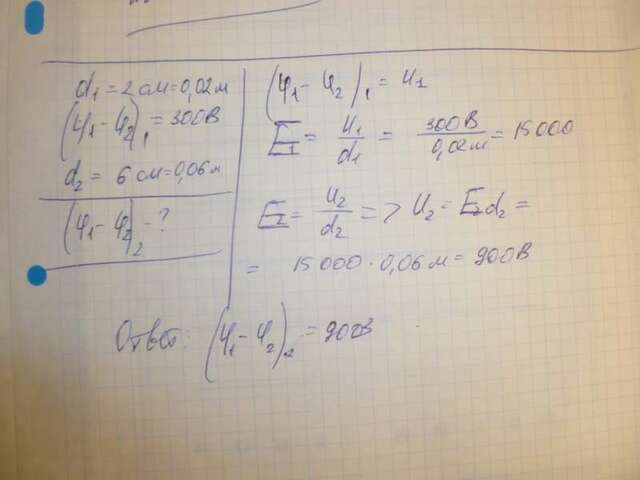 d₁ = 2 см = 0,02 м
(φ₁ - φ₂)₁ = 300В
d₂ = 6 см = 0,06 м
(φ₁ - φ₂)₂ - ?
(φ₁ - φ₂)₁ = U₁
E₁ = U₁/d₁ = 300В/0,02м = 15000
E₂ = U₂/d₂ => U₂ = E₂d₂ =
= 15000 · 0,06 м = 900В
Ответ: (φ₁ - φ₂)₂ = 900В